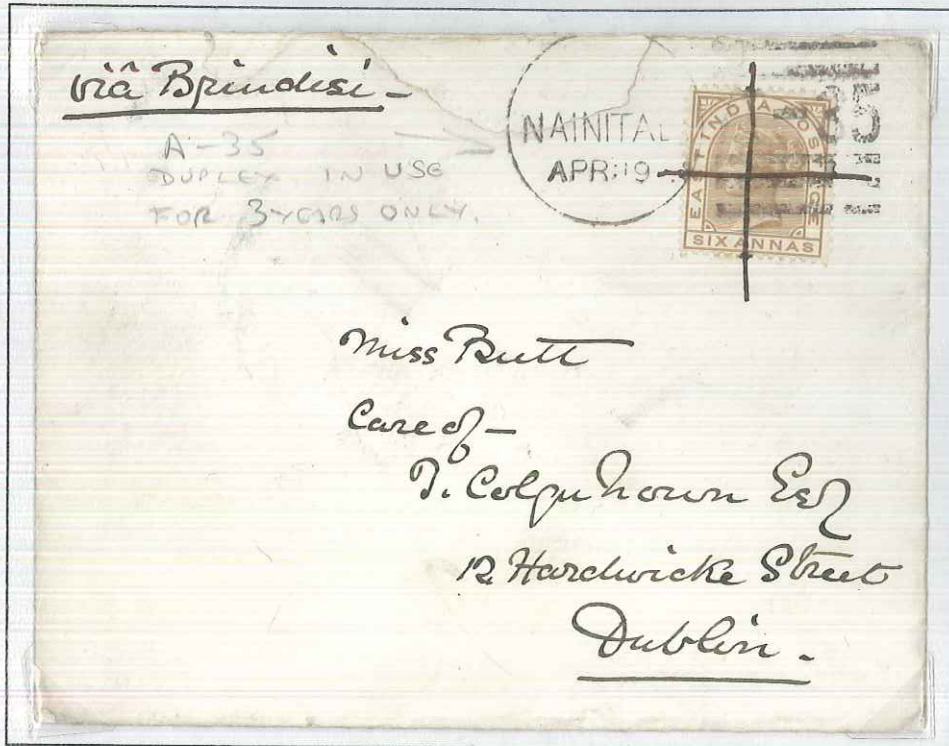 viâ Brindisi -
A-35
DUPLEX IN USE
FOR 3 YEARS ONLY.
NAINITAL
APR:19
EAST INDIA POSTAGE
SIX ANNAS
35
Miss Butt
Care of -
T. Colquhoun Esq
12 Hardwicke Street
Dublin.